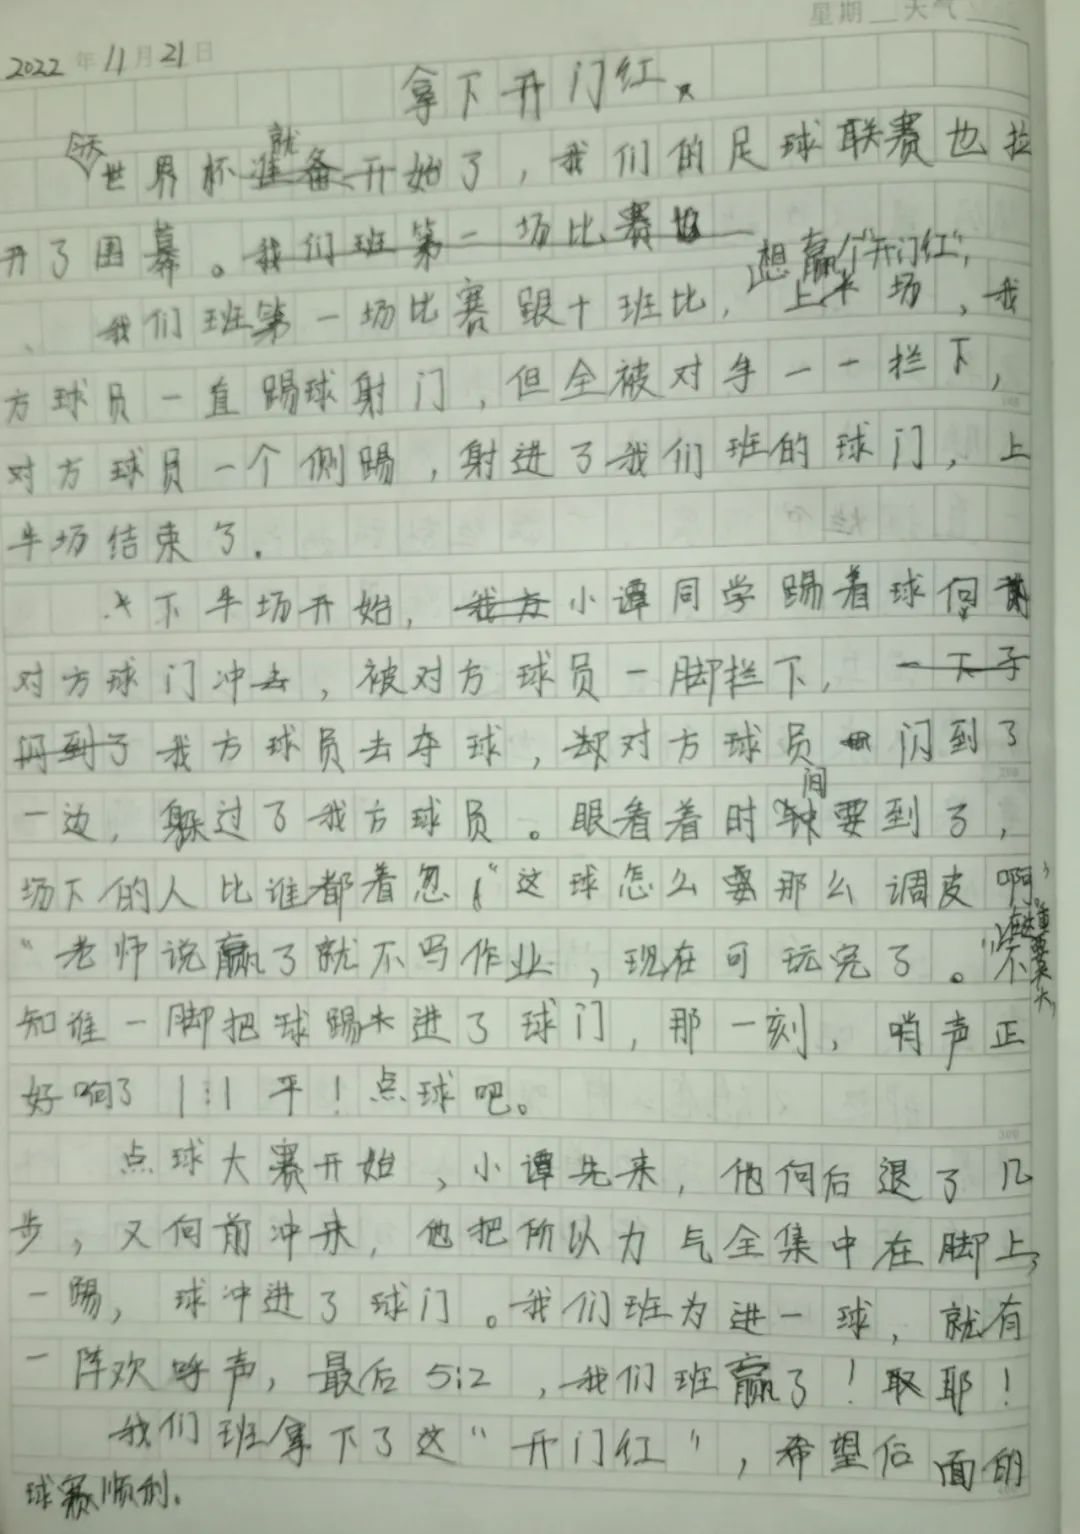 星期 天气
2022年11月21日
拿下开门红
今天世界杯就开始了，我们的足球联赛也拉
开了围幕。我们班第一场比赛
我们班第一场比赛跟十班比，想赢个“开门红”，上半场，我
方球员一直踢球射门，但全被对手一一拦下，
对方球员一个侧踢，射进了我们班的球门，上
半场结束了.
下半场开始，我方小谭同学踢着球向
对方球门冲去，被对方球员一脚拦下，一下子
闪到了我方球员去夺球，却对方球员闪到了
一边，躲过了我方球员。眼看着时间要到了，
场下的人比谁都着忽，“这球怎么要那么调皮啊。”
“老师说赢了就不写作业，现在可玩完了。”不
知谁一脚把球踢进了球门，那一刻，哨声正
好响了1:1平！点球吧。
点球大赛开始，小谭先来，他向后退了几
步，又向前冲来，他把所以力气全集中在脚上，
一踢，球冲进了球门。我们班为进一球，就有
一阵欢呼声，最后5:2，我们班赢了！耶！
我们班拿下了这“开门红”，希望后面的
球赛顺利。